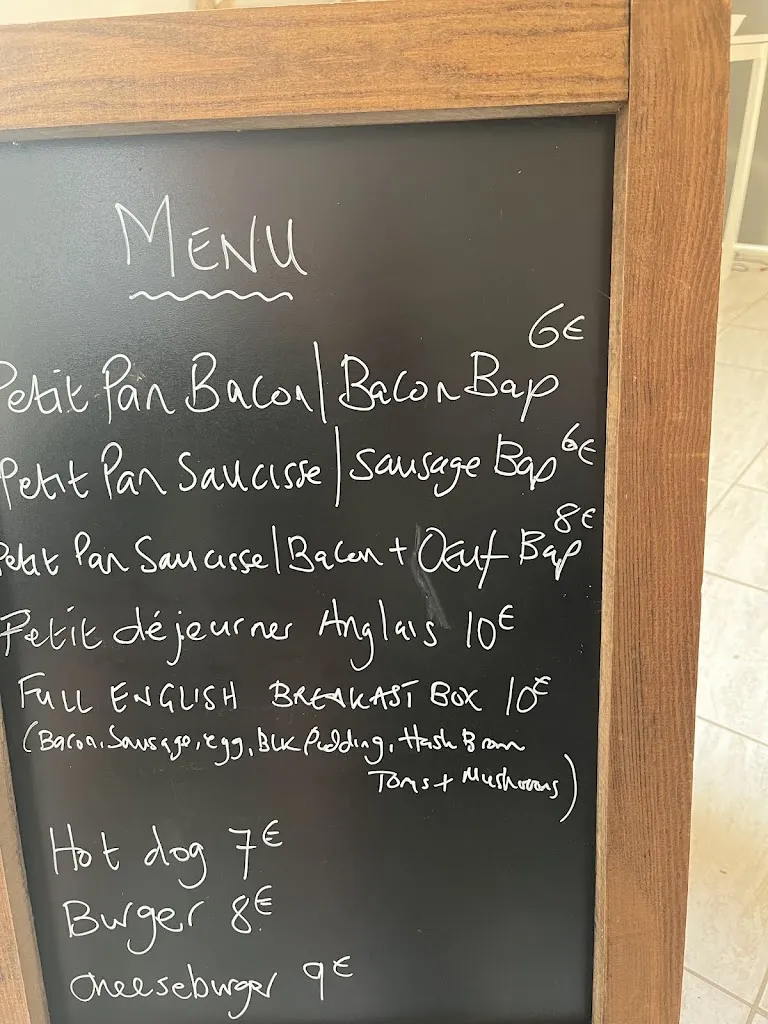 MENU
6€
Petit Pan Bacon/Bacon Bap
Petit Pan Saucisse/Sausage Bap 6€
8€
Petit Pan Saucisse/Bacon + Oeuf Bap
Petit déjeurner Anglais 10€
FULL ENGLISH BREAKAST BOX 10€
(Bacon, Sausage, egg, BLK Pudding, Hash Brown
Toms + Mushrooms)
Hot dog 7€
Burger 8€
Cheeseburger 9€